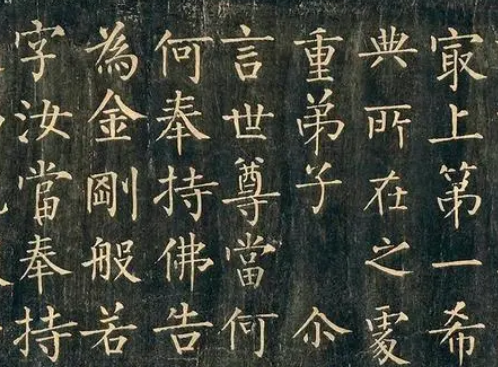 㝡上第一希
典所在之處
重弟子　尒
言世尊當何
何奉持佛告
為金剛般若
字汝當奉持